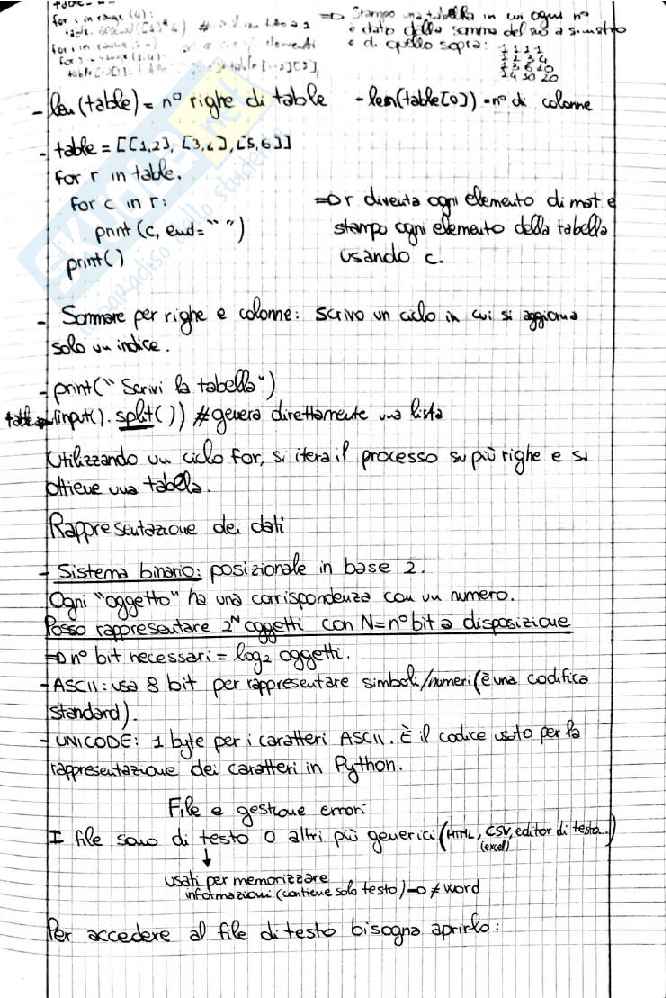 for i in range (4):
=> Stampo una tabella in cui ogni n°
è dato dalla somma del n° a sinistra
e di quello sopra:
1 1 1 1
1 2 3 4
1 3 6 10
1 4 10 20
- len(table) = n° righe di table - len(table[0]) = n° di colonne
- table = [[1,2], [3,4], [5,6]]
for r in table:
for c in r: => r diventa ogni elemento di mat e
print (c, end=" ") stampo ogni elemento della tabella
print() usando c.
- Sommare per righe e colonne: scrivo un ciclo in cui si aggiorna
solo un indice.
- print("Scrivi la tabella")
input().split()) #genera direttamente una lista
Utilizzando un ciclo for, si itera il processo su più righe e si
ottiene una tabella.
Rappresentazione dei dati
- Sistema binario: posizionale in base 2.
Ogni "oggetto" ha una corrispondenza con un numero.
Posso rappresentare 2^N oggetti con N=n° bit a disposizione
=> n° bit necessari = log₂ oggetti.
- ASCII: usa 8 bit per rappresentare simboli/numeri (è una codifica
standard).
- UNICODE: 1 byte per i caratteri ASCII. È il codice usato per la
rappresentazione dei caratteri in Python.
File e gestione errori
I file sono di testo o altri più generici (HTML, CSV, editor di testo...)
(excel)
↓
usati per memorizzare
informazioni (contiene solo testo) => ≠ word
Per accedere al file di testo bisogna aprirlo: